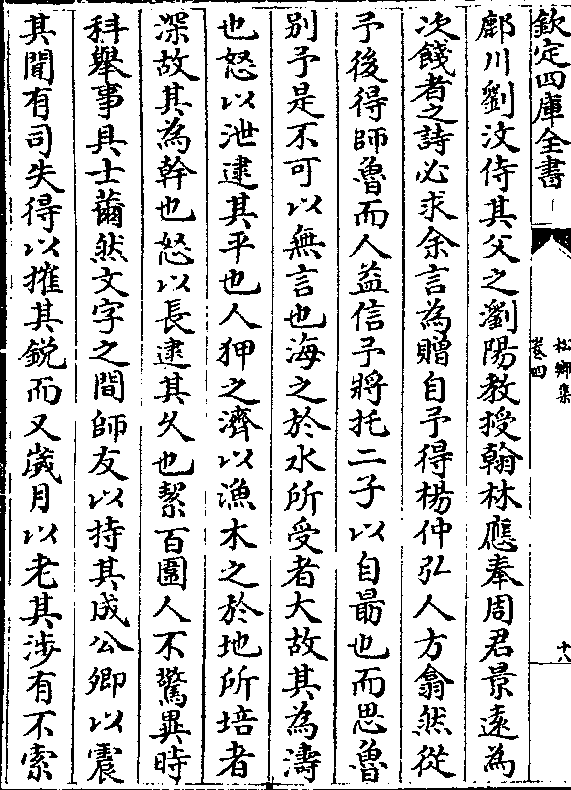 欽定四庫全書
松鄉集
卷四
十八
鄜川劉汶侍其父之瀏陽教授翰林應奉周君景遠為
次餞者之詩必求余言為贈自予得楊仲弘人方翕然從
予後得師魯而人益信予將托二子以自朂也而思魯
别予是不可以無言也海之於水所受者大故其為濤
也怒以泄逮其平也人狎之濟以漁木之於地所培者
深故其為幹也怒以長逮其久也絜百圍人不驚異時
科舉事具士薾然文字之間師友以持其成公卿以震
其聞有司失得以摧其銳而又歲月以老其涉有不索